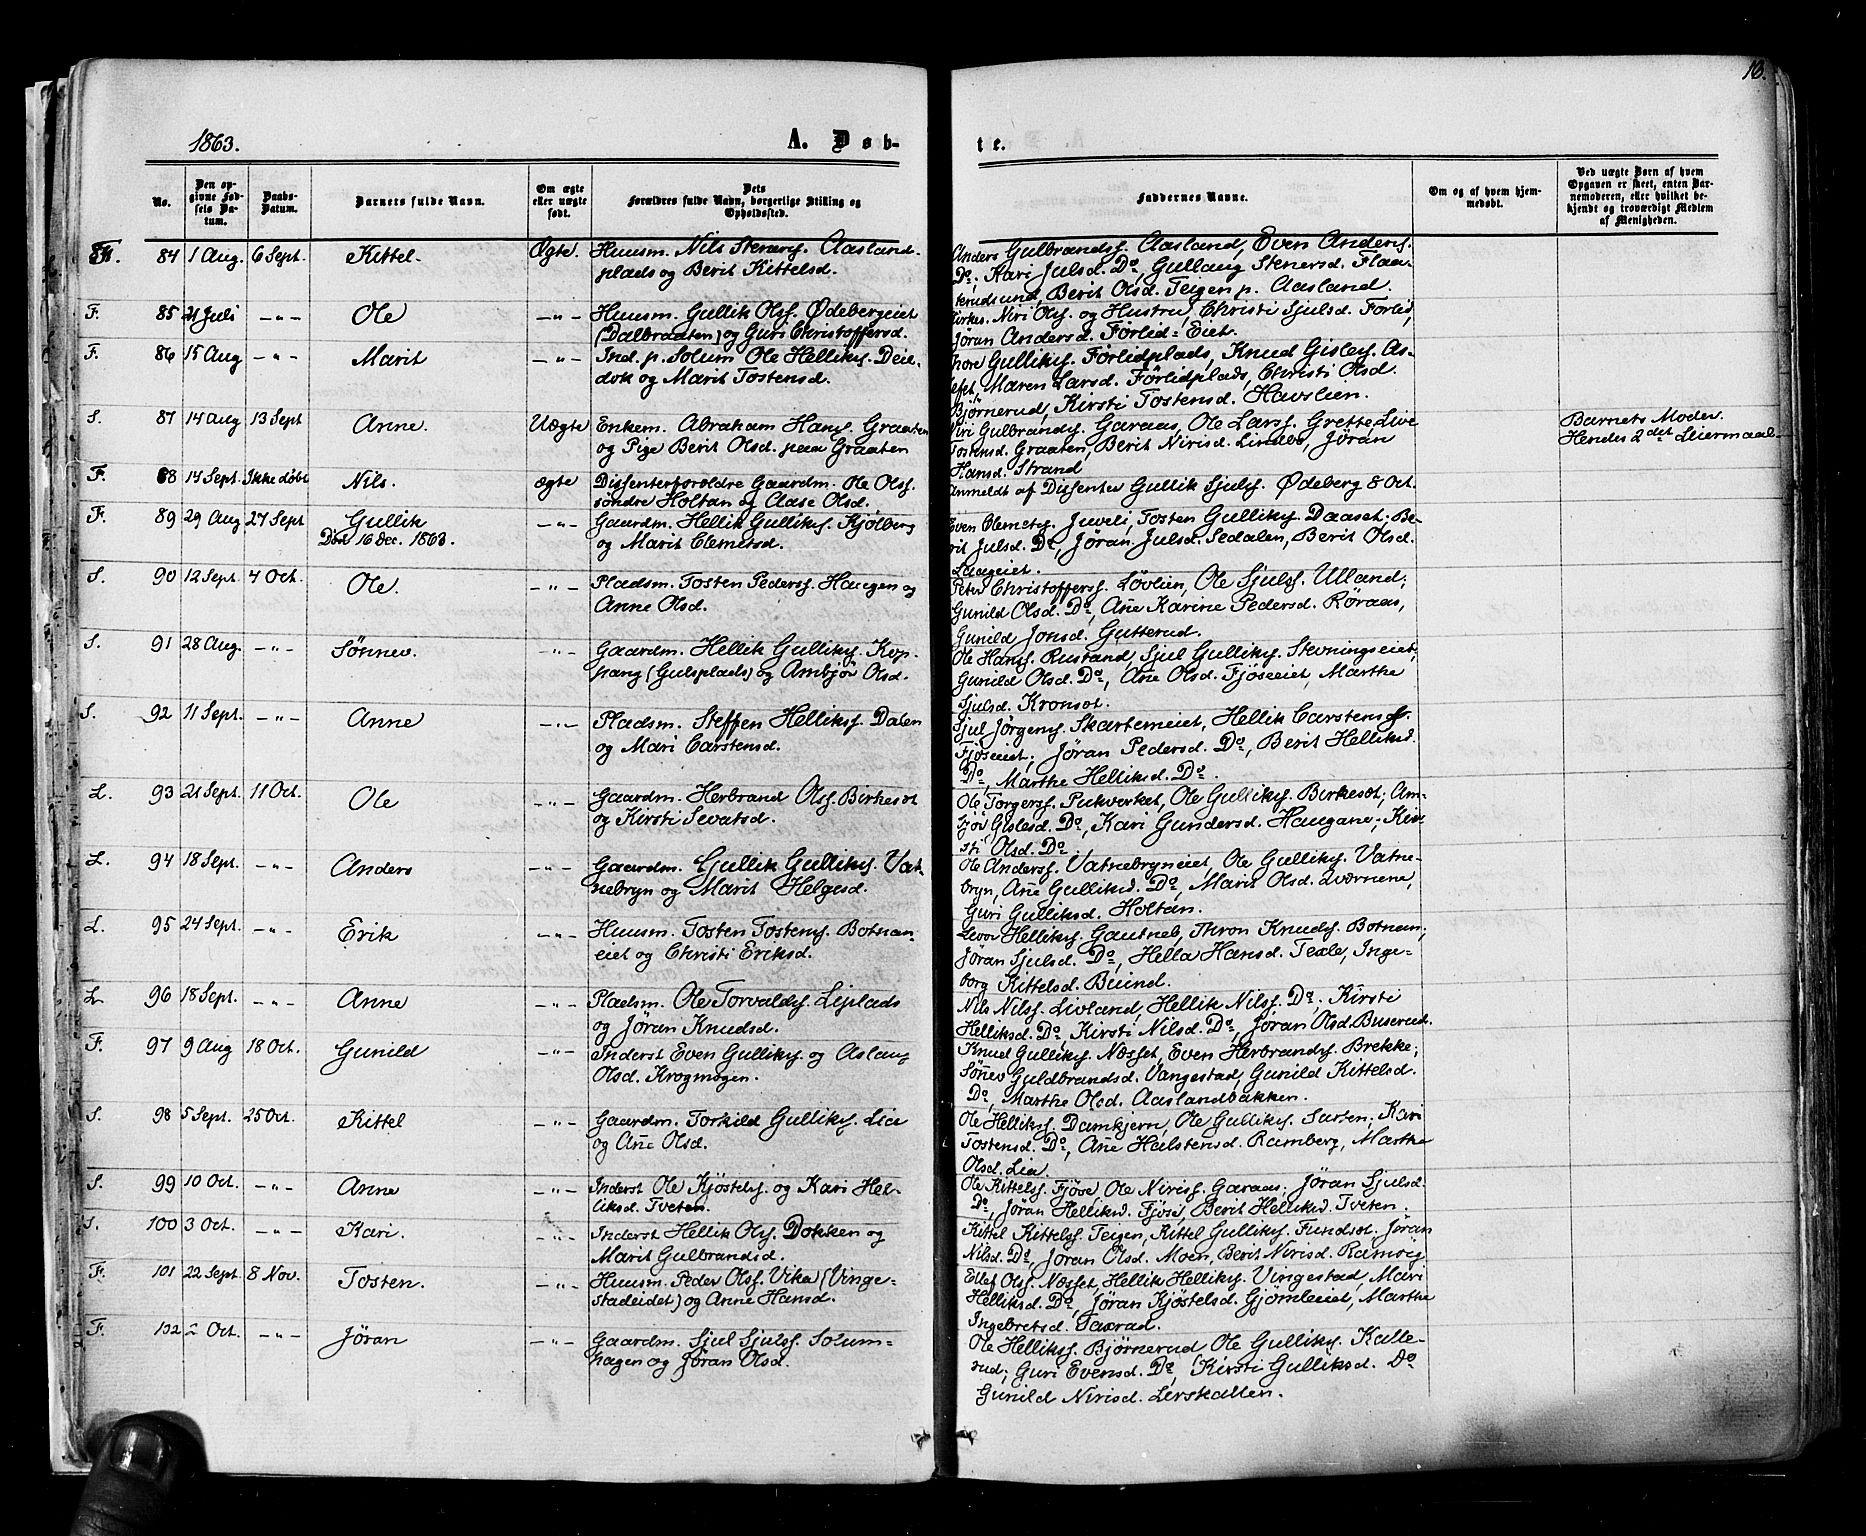 10.
1863.
A. Døb-
te.
No.
Den op-
givne Fød-
sels Da-
tum.
Daabs-
Datum.
Barnets fulde Navn.
Om ægte
eller uægte
født.
Dets
Forældres fulde Navn, borgerlige Stilling og
Opholdssted.
Faddernes Navne.
Om og af hvem hjem-
medøbt.
Ved uægte Børn af hvem
Opgaven er skeet, enten Bar-
nemoderen, eller hvilket be-
kjendt og troværdigt Medlem
af Menigheden.
84 1 Aug. 6 Sept. Kittel. Ægte. Huusm. Nils Steners. Aasland-
plads og Berit Kittelsd.
Anders Gulbrands. Aasland, Even Anders.
Do, Kari Julsd. Do, Gullaug Stenersd. Flaa-
terudsund, Berit Olsd. Teigen p. Aasland.
F. 85 21 Juli -"- Ole -"- Huusm. Gullik Ols. Ødebergeiet
(Dalbraaten) og Guri Christoffersd.
Kirkes. Niri Ols. og Hustru, Christi Sjulsd. Førlid,
Jøran Andersd. Førlid-Eiet.
F. 86 15 Aug -"- Marit -"- Ind. p. Solum Ole Helliks. Deie-
dok og Marit Tostensd.
Thore Gulliks. Førlidplads, Knud Gisles. As-
lefet, Maren Larsd. Førlidplads, Christi Olsd.
Bjørnerud, Kirsti Tostensd. Havslien.
S. 87 14 Aug 13 Sept Anne. Uægte Enkem. Abraham Hans. Graaten
og Pige Berit Olsd. paa Graaten
Niri Gulbrands. Garaas, Ole Lars. Grette, Live
Tostensd. Graaten, Berit Nirisd. Lindbo, Jøran
Hansd. Strand
Barnets Moder.
Hendes 2det Leiermaal-
F. 88 14 Sept. Ikke døbt Nils. ægte Dissenterforældre Gaardm. Ole Ols.
søndre Holtan og Aase Olsd.
Anmeldt af Dissenter Gullik Sjuls. Ødeberg 8 Oct.
F. 89 29 Aug 27 Sept Gullik -"- Gaardm. Hellik Gulliks. Kjølberg
Død 16 Dec. 1863. og Marit Clemetsd.
Even Clemets. Juveli, Tosten Gulliks. Daaset, Be-
rit Julsd. Do, Jøran Julsd. Sedalen, Berit Olsd.
Laageiet.
S. 90 12 Sept. 4 Oct. Ole. -"- Pladsm. Tosten Peders. Haugen og
Anne Olsd.
Peter Christoffers. Løvlien, Ole Sjuls. Ulland;
Gunild Olsd. Do, Ane Karine Pedersd. Røraas,
Gunild Jonsd. Gutterud.
S. 91 28 Aug. -"- Sønnev. -"- Gaardm. Hellik Gulliks. Kop-
pang (Gulsplads) og Ambjør Olsd.
Ole Hans. Rustand, Sjul Gulliks. Stevningseiet,
Gunild Olsd. Do, Ane Olsd. Fjøseiet, Marthe
Sjulsd. Kronset.
S. 92 11 Sept. -"- Anne -"- Pladsm. Steffen Helliks. Dalen
og Mari Carstensd.
Sjul Jørgens. Skartemeiet, Hellik Carstens.
Fjøseiet, Jøran Pedersd. Do, Berit Helliksd.
Do, Marthe Helliksd. Do.
L. 93 21 Sept. 11 Oct. Ole -"- Gaardm. Herbrand Ols. Birkesøt
og Kirsti Sevatsd.
Ole Torgers. Pukverket, Ole Gulliks. Birkesøt, Am-
bjør Gislesd. Do, Kari Gundersd. Haugane, Kir-
sti Olsd. Do.
L. 94 18 Sept. -"- Anders -"- Gaardm. Gullik Gulliks. Vat-
nebryn og Marit Helgesd.
Ole Anders. Vatnebryneiet, Ole Gulliks. Vatne-
bryn, Ane Gulliksd. Do, Marit Olsd. Qværnene,
Guri Gulliksd. Holtan.
L. 95 24 Sept. -"- Erik -"- Huusm. Tosten Tostens. Botnan-
eiet og Christi Eriksd.
Levor Helliks. Gautneb, Thron Knuds. Botnan;
Jøran Sjulsd. Do, Hella Hansd. Texle, Inge-
borg Kittelsd. Buind.
L. 96 18 Sept. -"- Anne -"- Pladsm. Ole Torvalds. Liplads
og Jøran Knudsd.
Nils Nils. Livland, Hellik Nils. Do, Kirsti
Helliksd. Do, Kirsti Nilsd. Do, Jøran Olsd. Buserud.
F. 97 9 Aug 18 Oct. Gunild -"- Inderst Even Gulliks. og Aslaug
Olsd. Krogmogen.
Knud Gulliks. Næsset, Even Herbrands. Brekke;
Sønev Guldbrandsd. Vangestad, Gunild Kittelsd.
Do, Marthe Olsd. Aaslandbakken.
S. 98 5 Sept. 25 Oct. Kittel -"- Gaardm. Torkild Gulliks. Lia
og Ane Olsd.
Ole Helliks. Damkjern, Ole Gulliks. Sarten; Kari
Tostensd. Do, Ane Halstensd. Ramberg, Marthe
Olsd. Lia.
S. 99 10 Oct. -"- Anne -"- Inderst Ole Kjøstels. og Kari Hel-
liksd. Tveten.
Ole Kittels. Fjøse Ole Niris. Garaas; Jøran Sjulsd.
Do, Jøran Helliksd. Fjøse, Berit Helliksd. Tveten.
S. 100 3 Oct. -"- Kari. -"- Inderst Hellik Ols. Dokken og
Marit Gulbrandsd.
Kittel Kittels. Teigen, Kittel Gulliks. Fundsøt. Jøran
Nilsd. Do, Jøran Olsd. Moen, Berit Nirisd. Ramvig
F. 101 22 Sept. 8 Nov. Tosten. -"- Huusm. Peder Ols. Vika (Vinge-
stadeidet) og Anne Hansd.
Ellef Ols. Næsset, Hellik Helliks. Vingestad, Mari
Helliksd. Do, Jøran Kjøstelsd. Gjømleeiet, Marthe
Ingebretsd. Taxrad.
F. 102 2 Oct. -"- Jøran -"- Gaardm. Sjul Sjuls. Solum-
hagen og Jøran Olsd.
Ole Helliks. Bjørnerud Ole Gulliks. Kalle-
rud; Guri Evensd. Do, Kirsti Gulliksd. Do
Gunild Nirisd. Lerskallen.